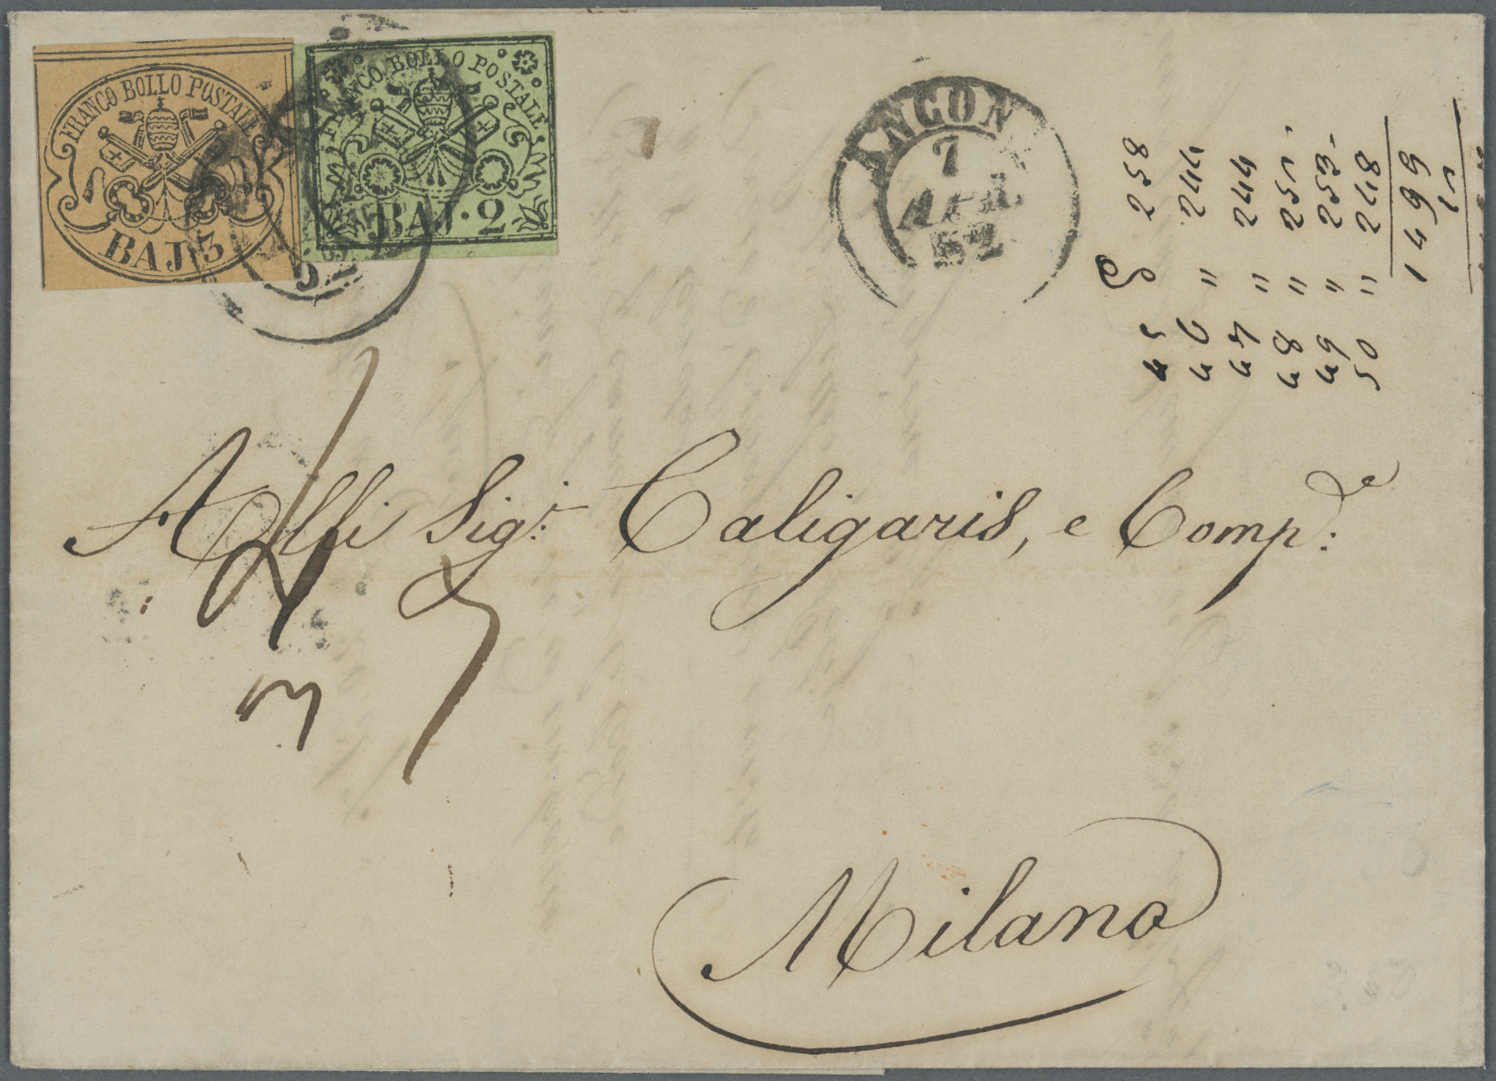 FRANCO BOLLO POSTALE
BAJ 3
FRANCO BOLLO POSTALE
BAJ. 2
52
ANCONA
7
APR.
52
Alli Sigr. Caligaris, e Comp.
Milano
3
45 258
46 " 244
47 " 244
48 " 251
49 " 253
50 " 248
1499